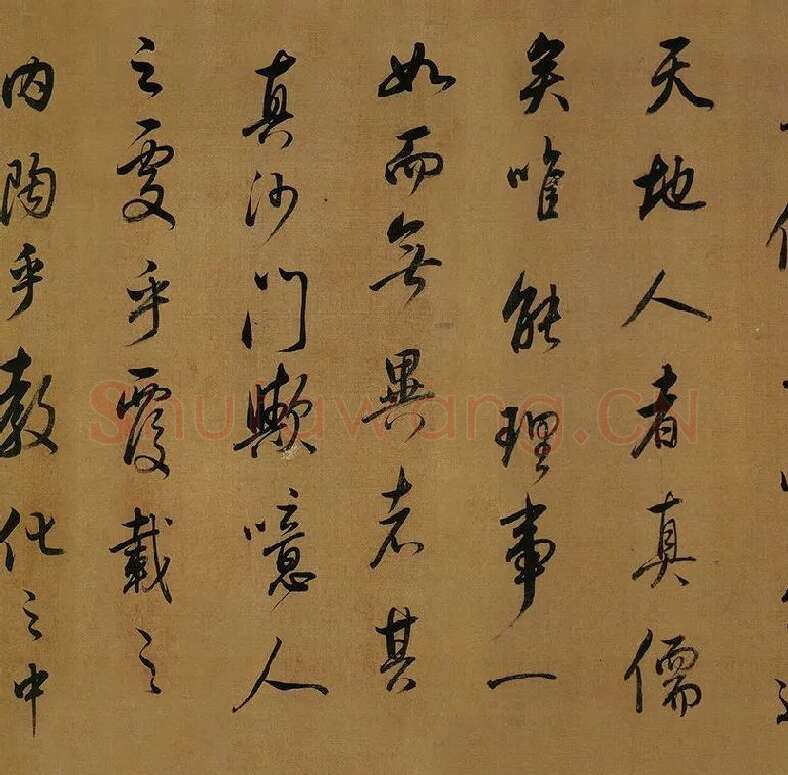 天地人者真儒
矣唯能理事一
如而無異者其
真沙門歟噫人
之處乎覆載之
内陶乎教化之中
Shufawang.CN